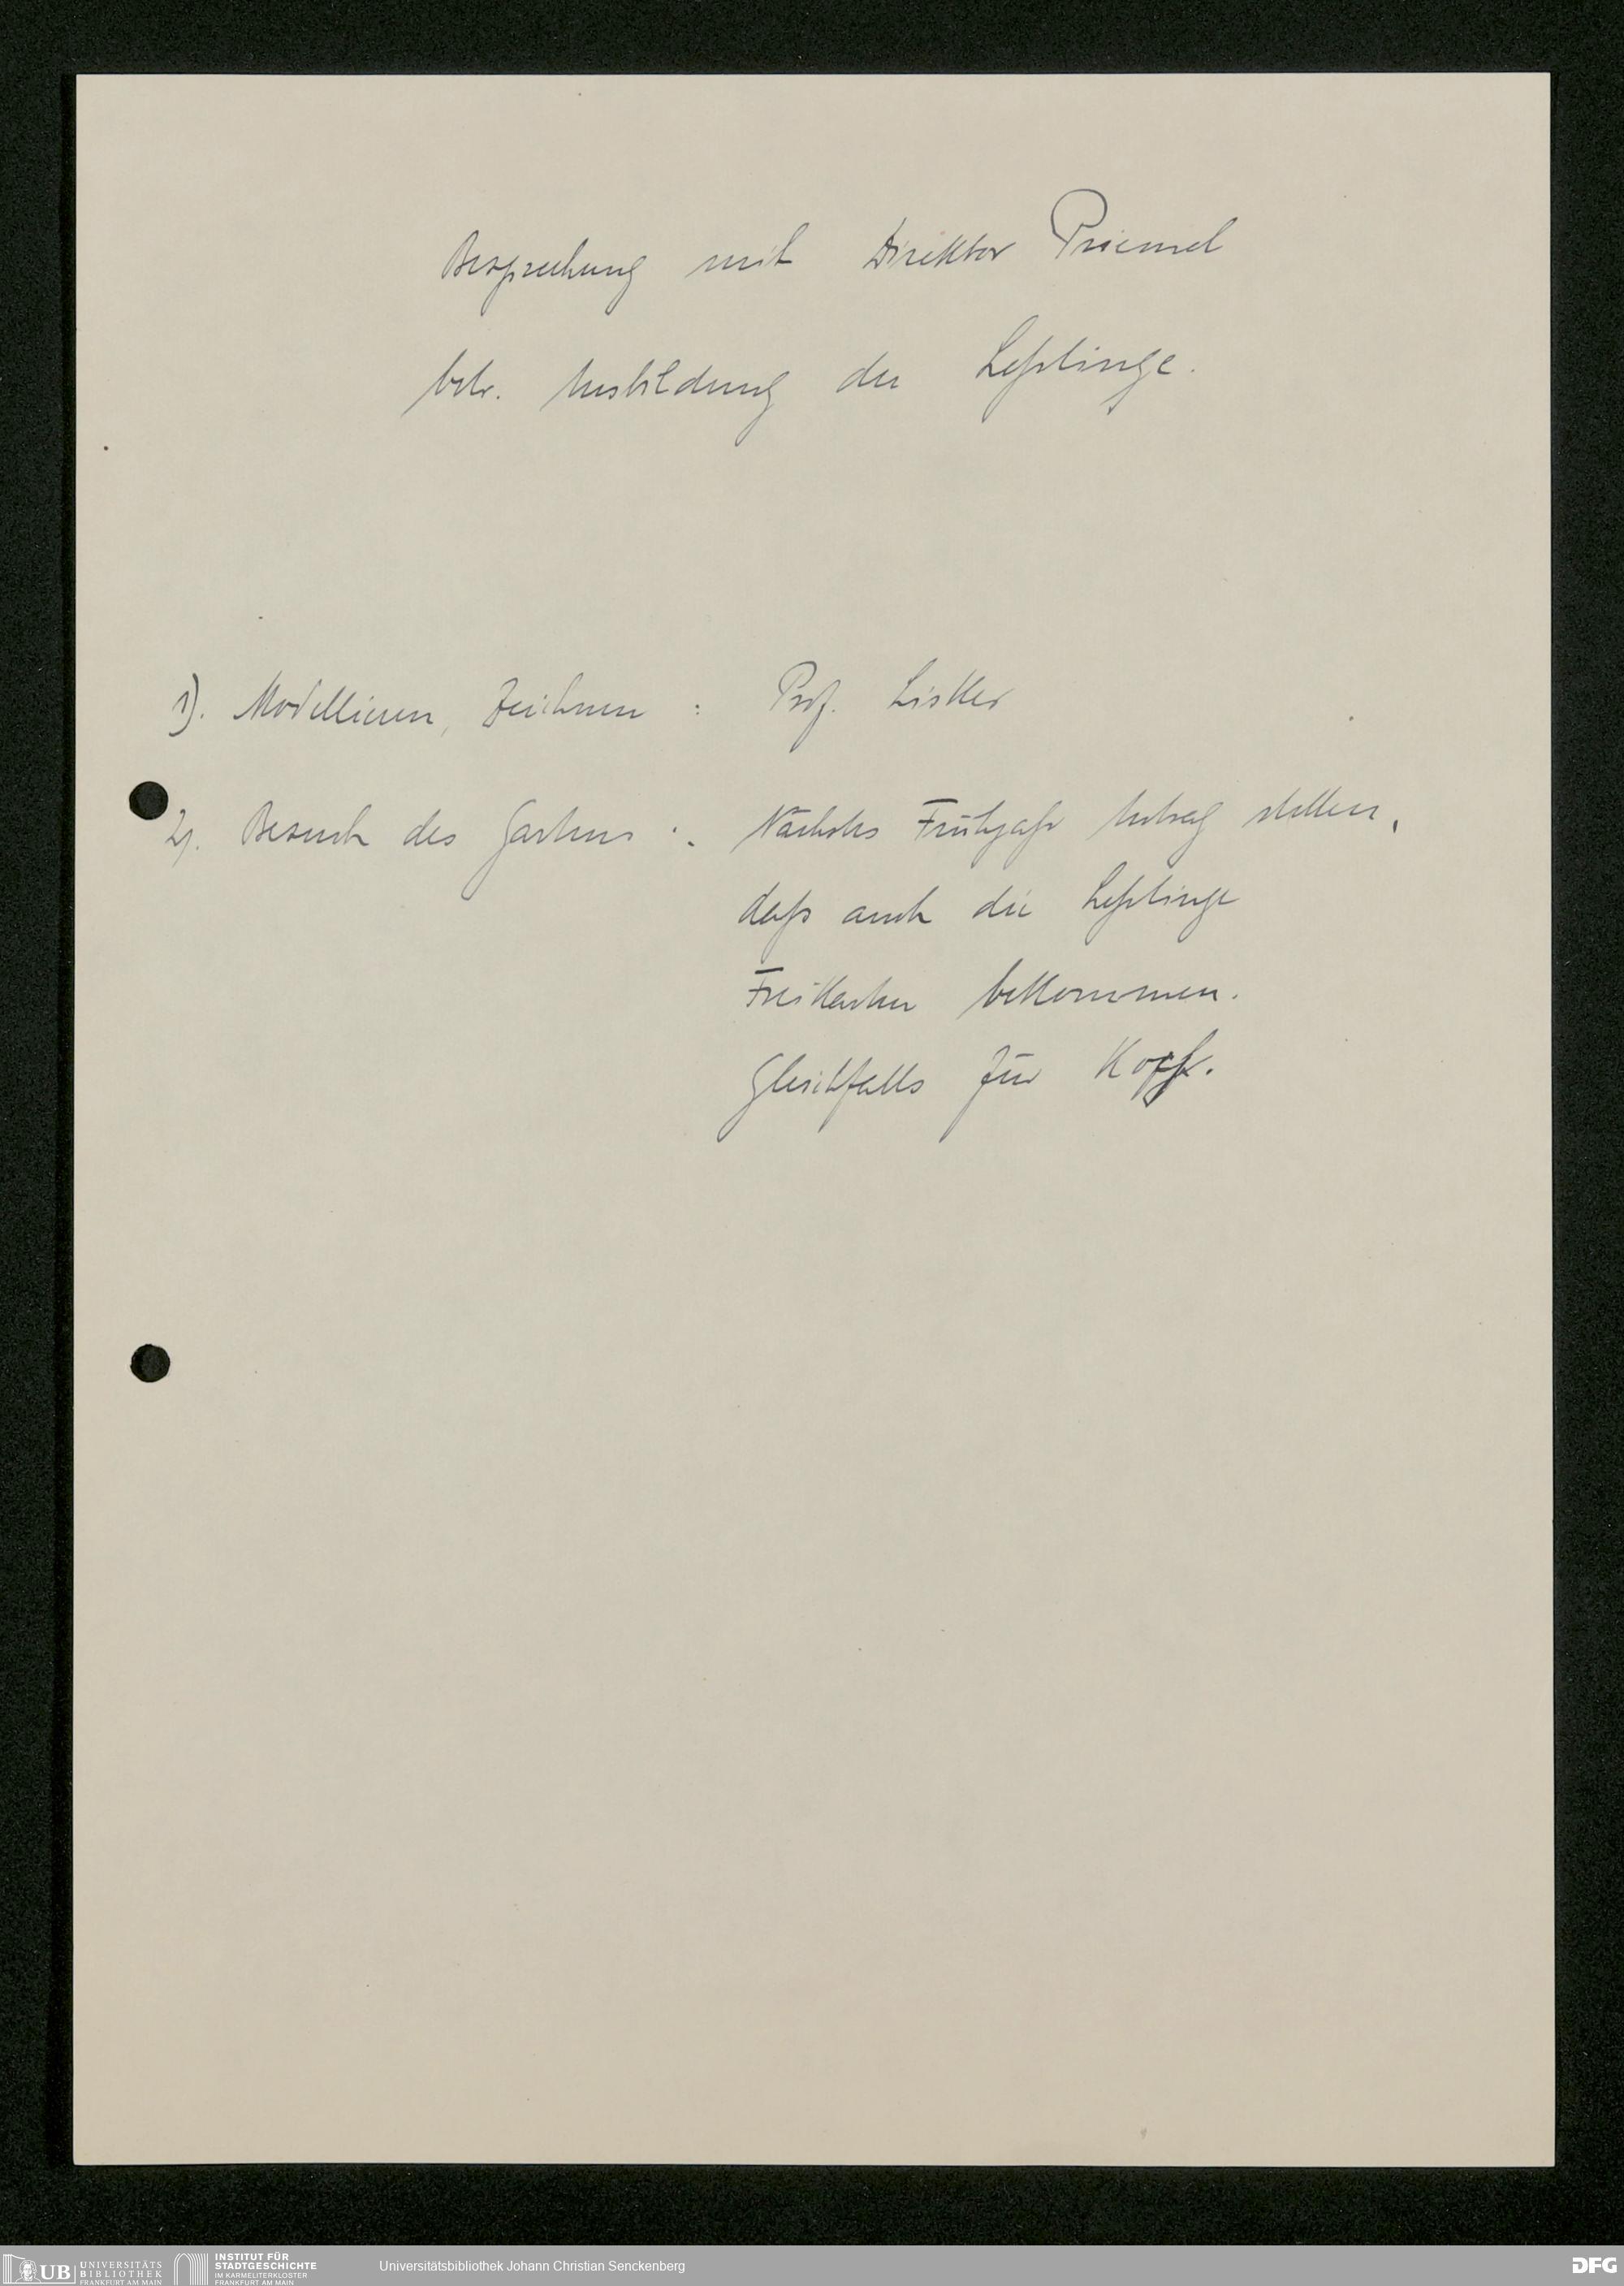 Besprechung mit Direktor Priemel
betr. Ausbildung der Lehrlinge.
1). Modellieren, Zeichnen : Prof. Lisker
2). Besuch des Gartens : Nächstes Frühjahr Antrag stellen,
daß auch die Lehrlinge
Freikarten bekommen.
Gleichfalls für Kopp.
UB UNIVERSITÄTS
BIBLIOTHEK
FRANKFURT AM MAIN
INSTITUT FÜR
STADTGESCHICHTE
IM KARMELITERKLOSTER
FRANKFURT AM MAIN
Universitätsbibliothek Johann Christian Senckenberg
DFG